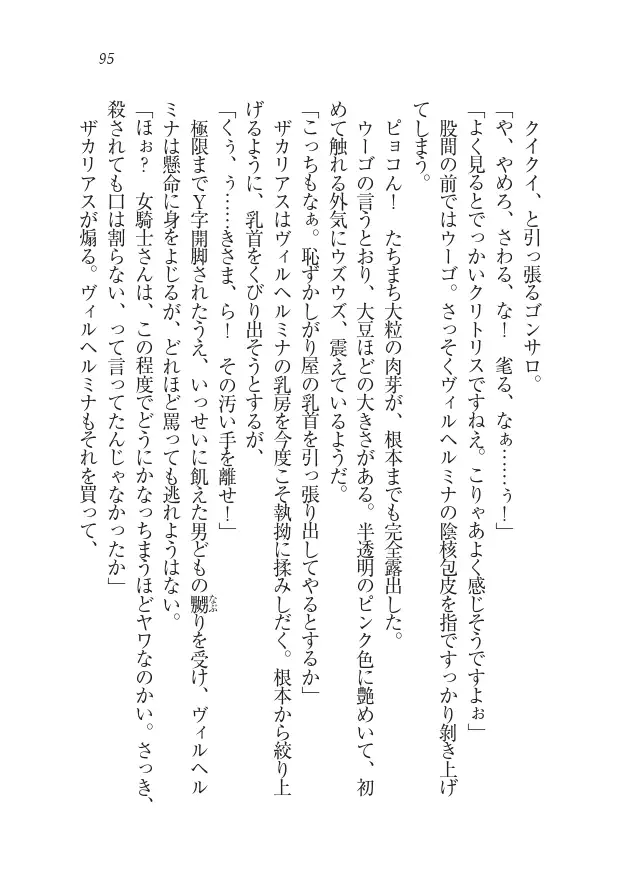 95
クイクイ、と引っ張るゴンサロ。
「や、やめろ、さわる、な！　毟る、なぁ……ぅ！」
「よく見るとでっかいクリトリスですねえ。こりゃあよく感じそうですよぉ」
股間の前ではウーゴ。さっそくヴィルヘルミナの陰核包皮を指ですっかり剝き上げ
てしまう。
ピョコん！　たちまち大粒の肉芽が、根本までも完全露出した。
ウーゴの言うとおり、大豆ほどの大きさがある。半透明のピンク色に艶めいて、初
めて触れる外気にウズウズ、震えているようだ。
「こっちもなぁ。恥ずかしがり屋の乳首を引っ張り出してやるとするか」
ザカリアスはヴィルヘルミナの乳房を今度こそ執拗に揉みしだく。根本から絞り上
げるように、乳首をくびり出そうとするが、
「くぅ、ぅ……きさま、ら！　その汚い手を離せ！」
極限までＹ字開脚されたうえ、いっせいに飢えた男どもの嬲なぶりを受け、ヴィルヘル
ミナは懸命に身をよじるが、どれほど罵っても逃れようはない。
「ほぉ？　女騎士さんは、この程度でどうにかなっちまうほどヤワなのかい。さっき、
殺されても口は割らない、って言ってたんじゃなかったか」
ザカリアスが煽る。ヴィルヘルミナもそれを買って、